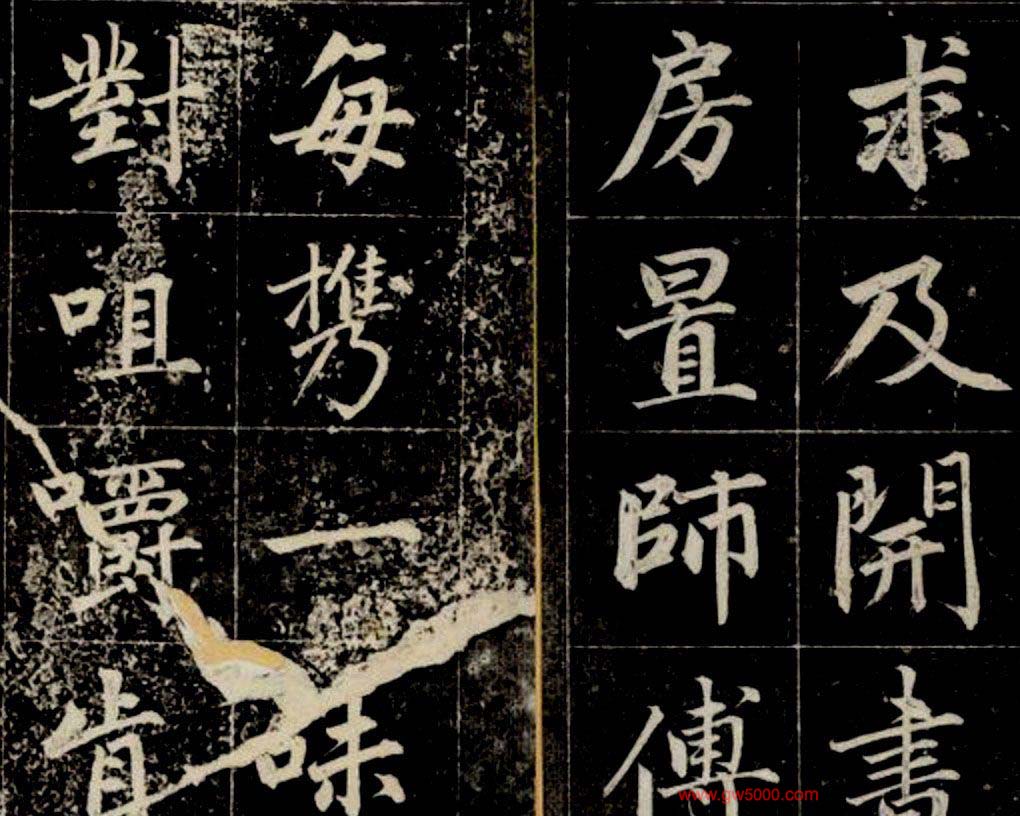 求及開書
房置師傅
每携一味
對咀嚼肯
www.gw5000.com